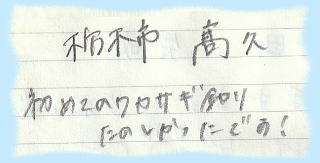 栃木市 髙久
初めてのワカサギ釣り
たのしかったでう!